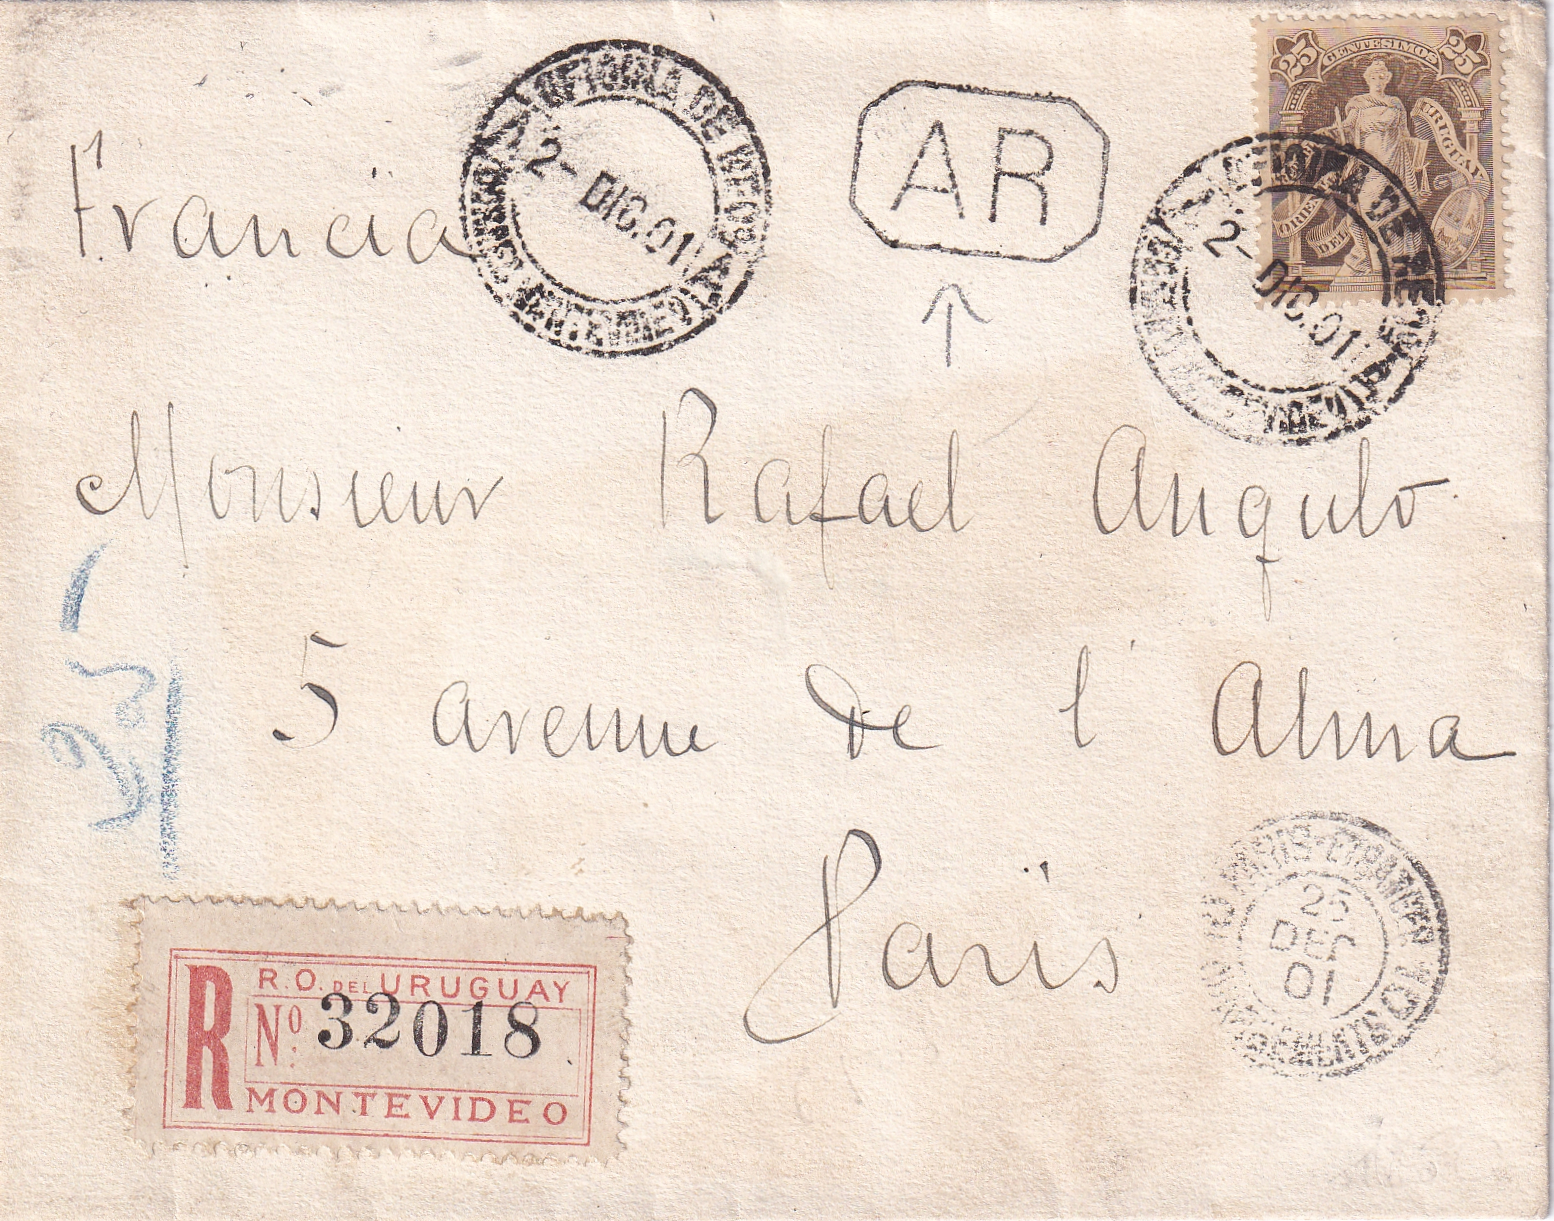 25 CENTESIMOS 25
URUGUAY
ORIENTAL
DEL
OFICINA DE
2- DIC. 01
MONTEVIDEO
AR
OFICINA DE
2- DIC. 01
MONTEVIDEO
Francia
Monsieur Rafael Angulo
5 avenue de l'Alma
Paris
25
DEC
01
R
R.O. DEL URUGUAY
Nº: 32018
MONTEVIDEO